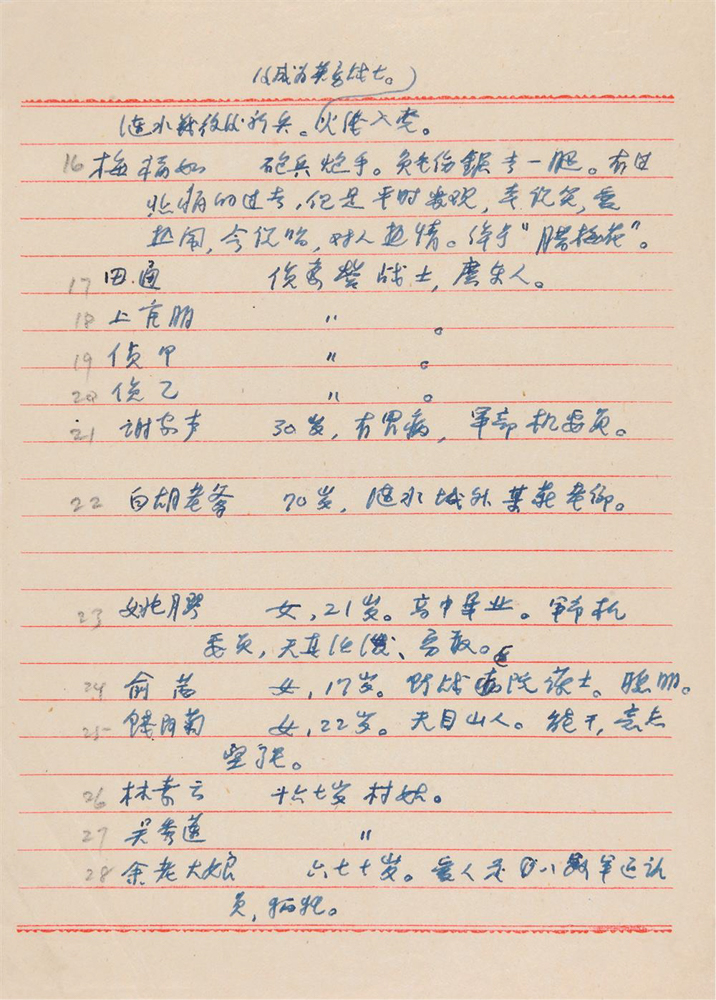 （成为英勇战士。）
涟水战役后新兵。火线入党。
16 梅福如 砲兵炮手。负重伤锯去一腿。有过
的过去，但是平时乐观，幸说笑，爱
热闹，今说哈，对人热情。绰号“腊梅花”。
17 田通 侦察营战士，广东人。
18 上官朋 〃 。
19 侦甲 〃 。
20 侦乙 〃 。
21 谢家声 30岁，有胃病，军部机要员。
22 白胡老爹 70岁，涟水城外某庄老乡。
23 姚月琴 女，21岁。高中毕业。军部机
要员，天真活泼、勇敢。
24 俞茜 女，17岁。野战病院护士。聪明。
25 钱阿菊 女，22岁。天目山人。能干，意志
坚强。
26 林素云 十六七岁村姑。
27 吴秀莲 〃
28 余老大娘 六七十岁。爱人是 军
员，牺牲。